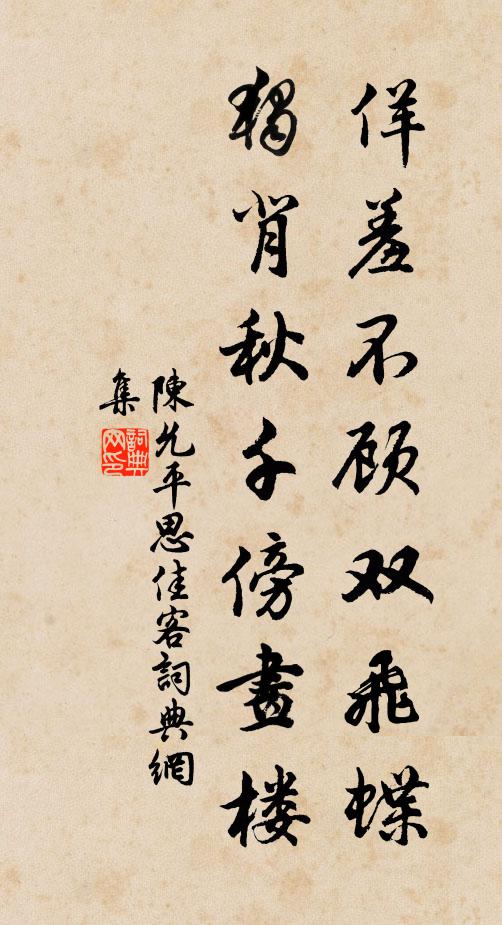 佯羞不顾双飞蝶
独背秋千傍畫楼
陳允平思佳客詞典網
集
詞典
网印